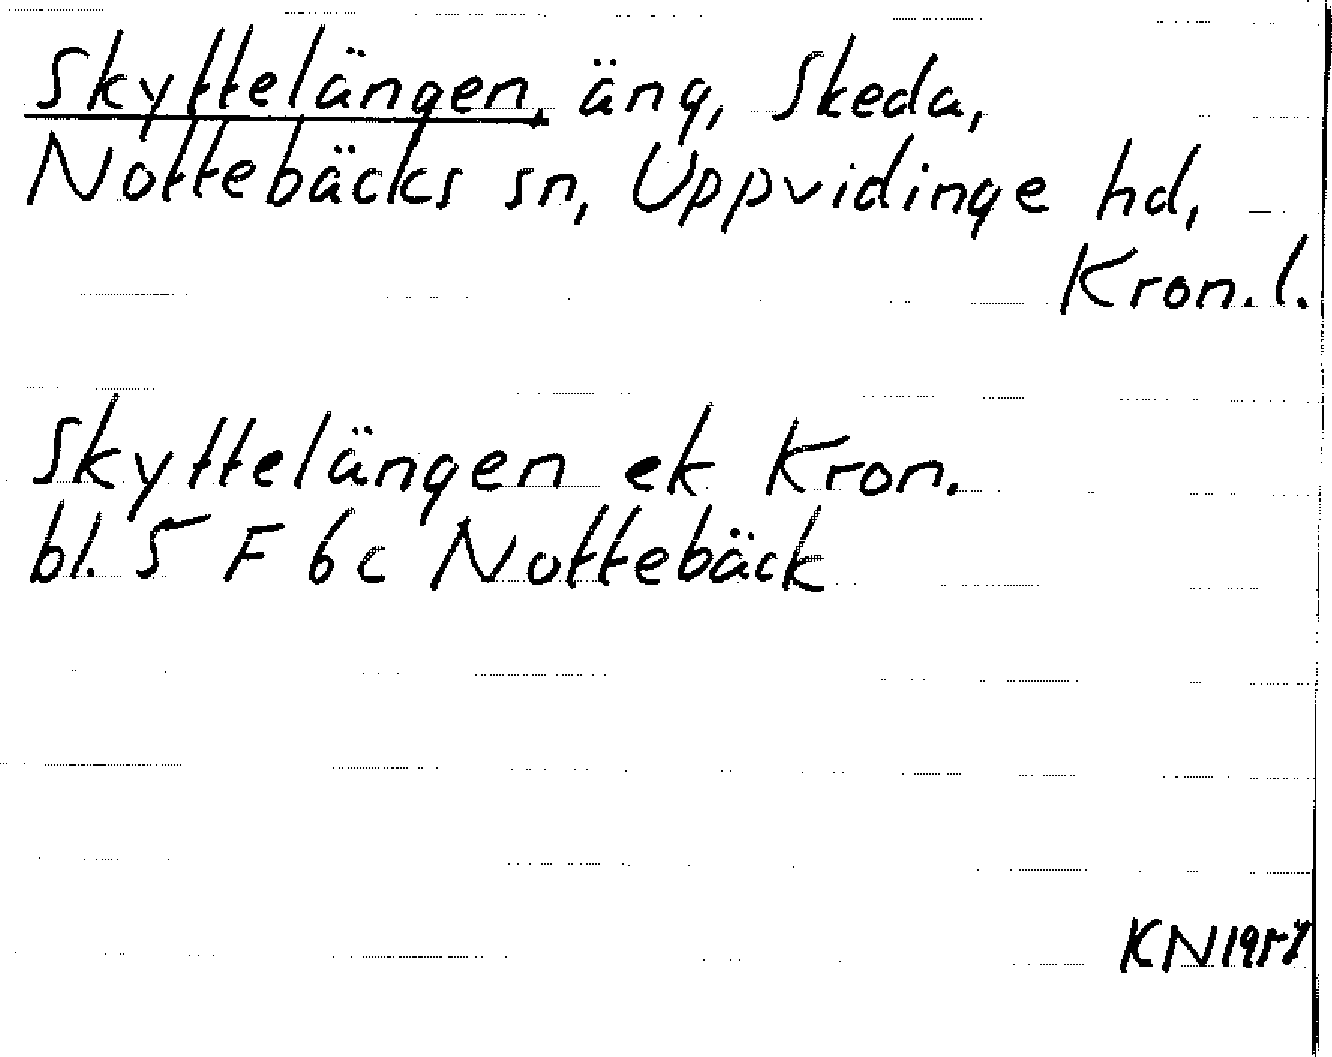 Skyttelängen, äng, Skeda,
Nottebäcks sn, Uppvidinge hd,
Kron. l.
Skyttelängen ek Kron.
bl. 5 F 6c Nottebäck
KN 1957